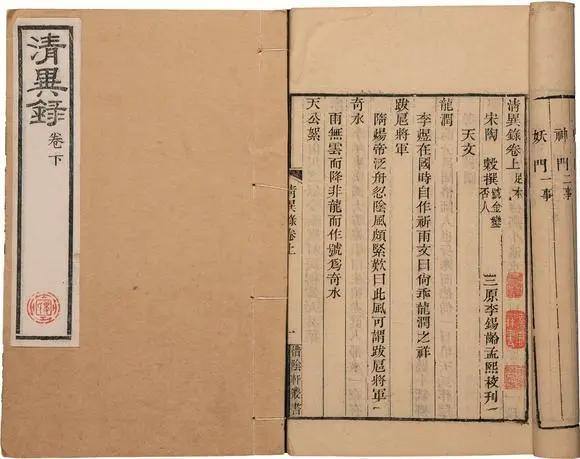 神門二事
妖門一事
清異錄卷上 足本
宋陶 穀撰 號金鑾否人 三原李錫齡孟熙校刊
天文
龍潤
李煜在國時自作祈雨文曰尚乖龍潤之祥
跋扈將軍
隋煬帝泛舟忽陰風頗緊歎曰此風可謂跋扈將軍
奇水
雨無雲而降非龍而作號爲奇水
天公絮
清異錄卷上 一 惜陰軒叢書
清異錄 卷下